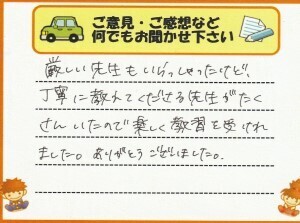 ご意見・ご感想など
何でもお聞かせ下さい
厳しい先生もいらっしゃったけど、
丁寧に教えてくださる先生がたく
さんいたので楽しく教習を受けれ
ました。ありがとうございました。